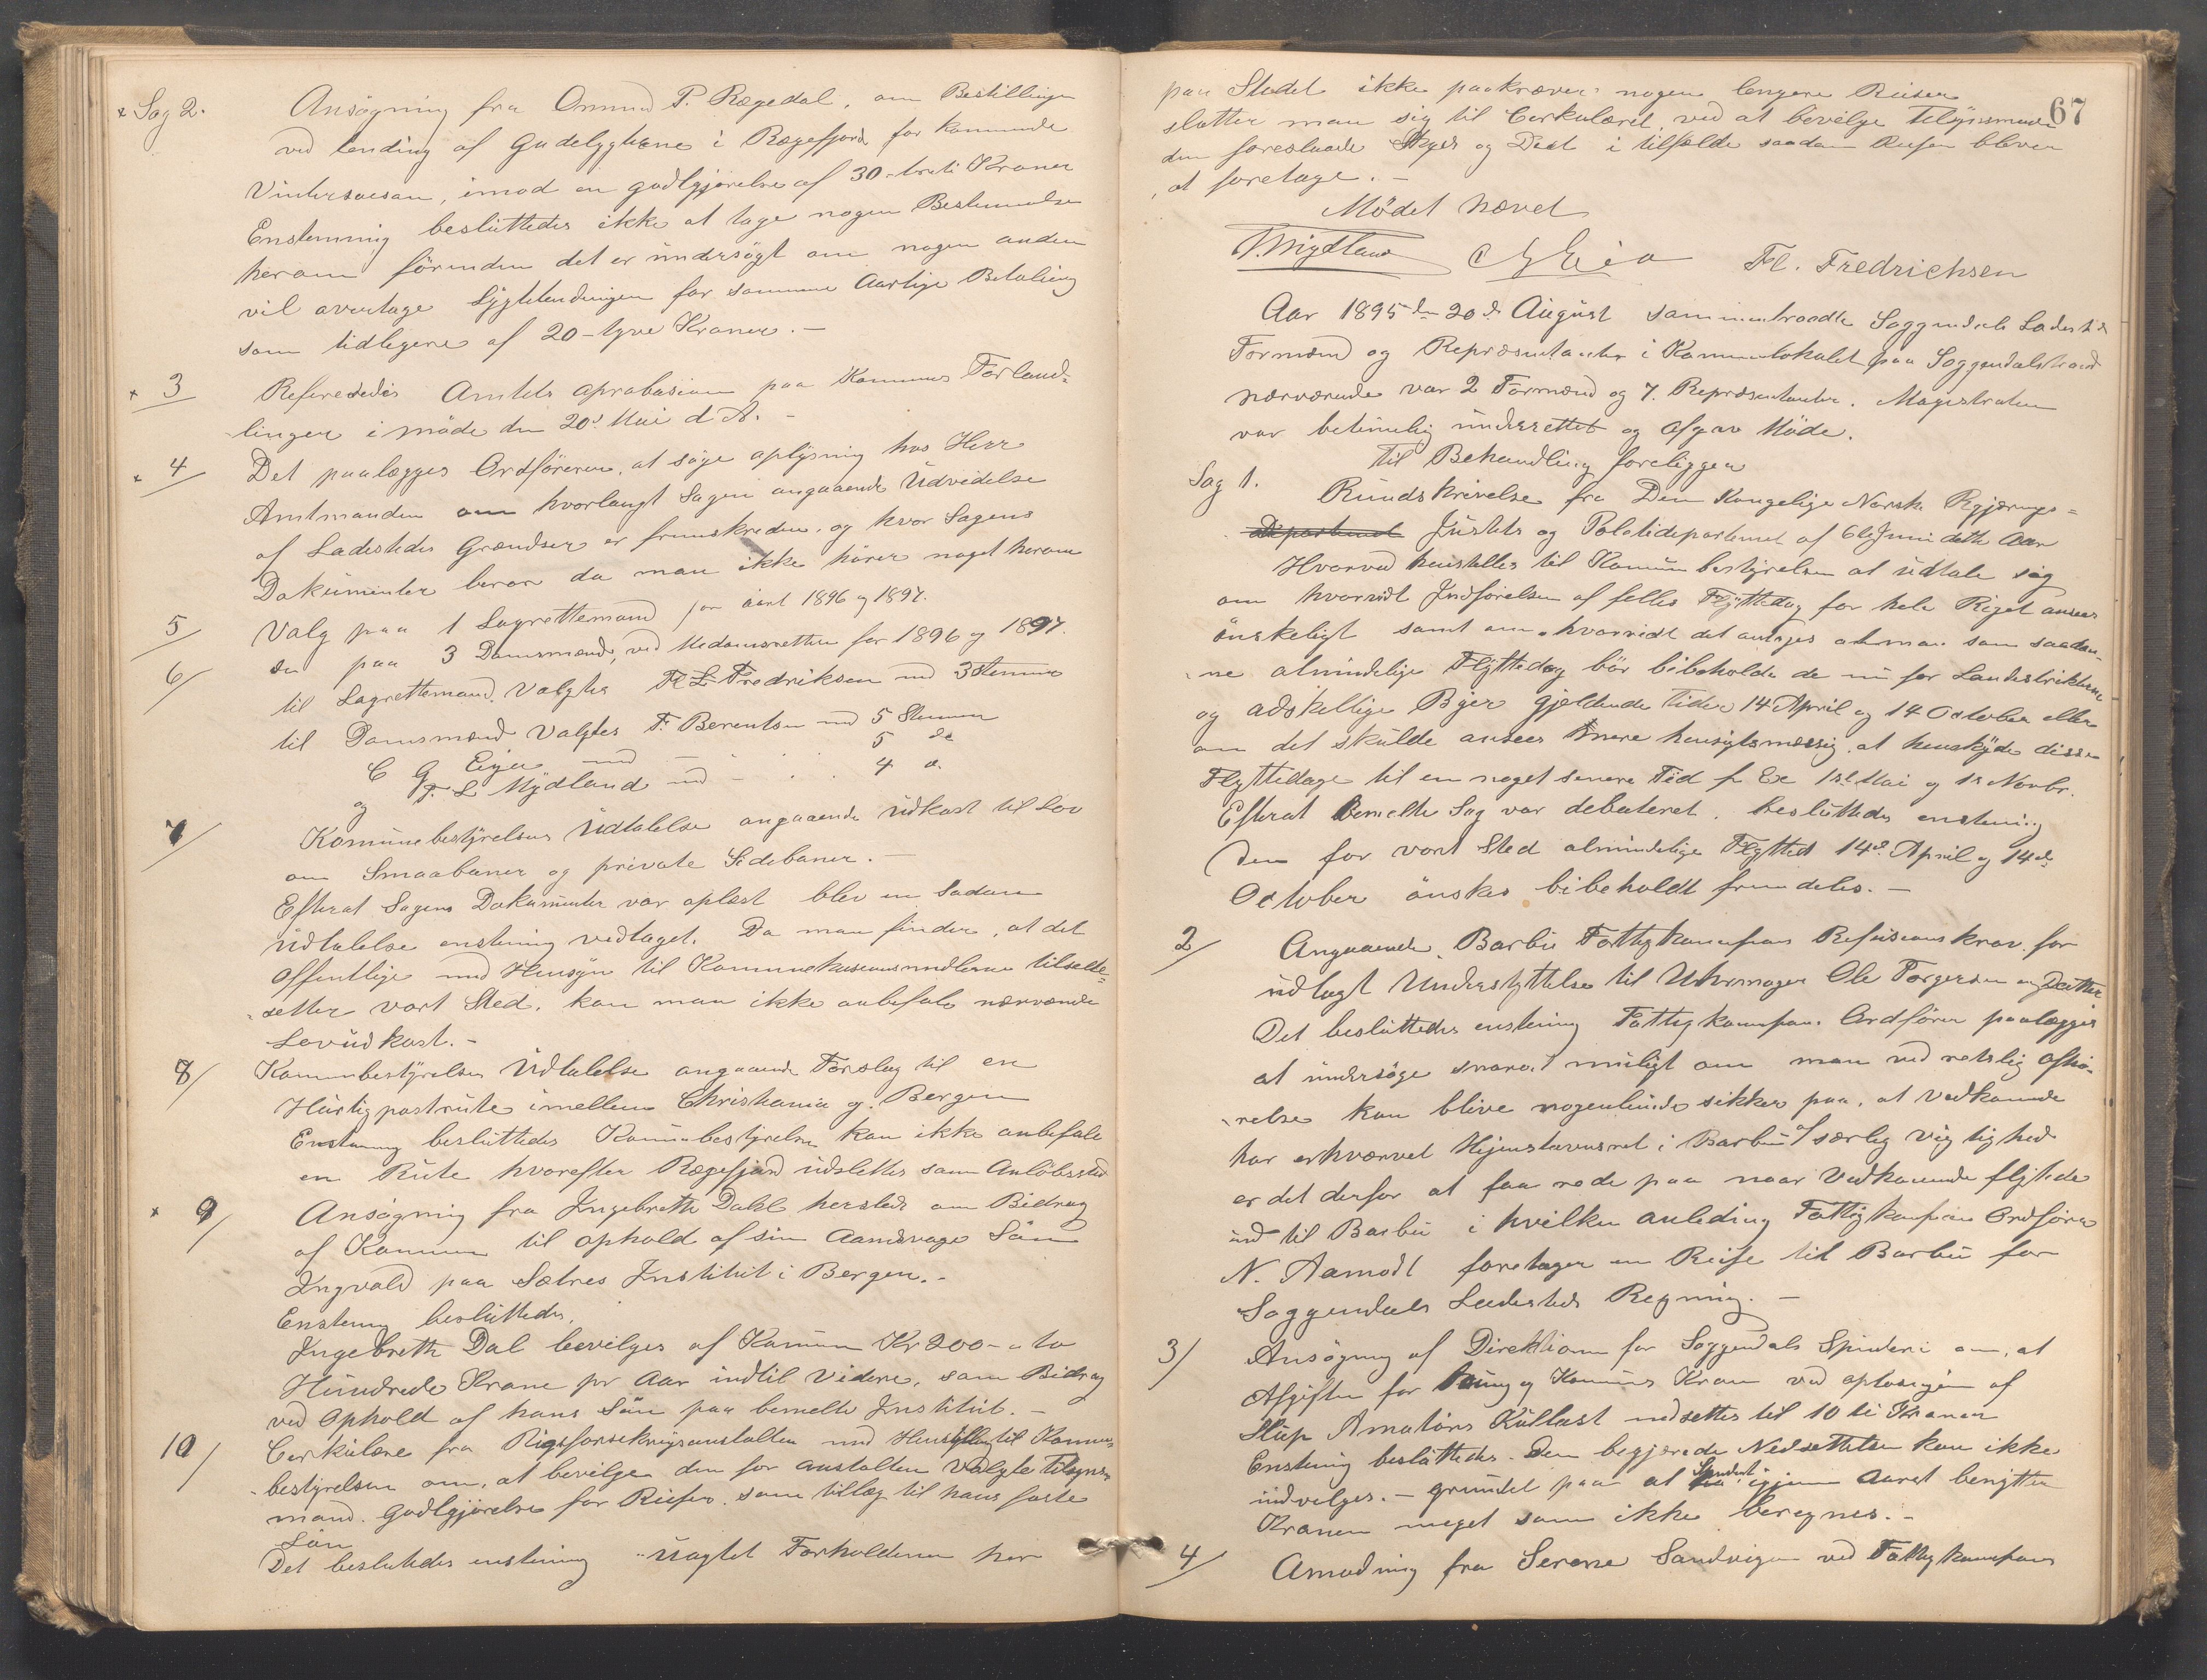 x Sag 2. Ansøgning fra Omund P. Rægedal, om Bestillingen
ved tending af Gadelygterne i Rægefjord for kommende
Vintersæson, imod en godtgjørelse af 30-treti Kroner
Enstemmig besluttedes ikke at tage nogen Bestemmelse
herom førenden det er undersøgt om nogen anden
vil overtage Lygtetendingen for samme Aarlige Betaling
som tidligere af 20-tyve Kroner. –
x 3 Refereredes Amtets aprobasion paa Kommunes Forhand-
linger i møde den 20d Mai d. A. –
x 4 Det paalægges Ordføreren, at søge oplysning hos Herr
Amtmanden om hvorlangt Sagen angaaende Udvidelse
af Ladestedes Grændser er fremskreden, og hvor Sagens
Dokumenter beror da man ikke hører noget herom
5/ Valg paa 1 Lagrettemand for aaret 1896 og 1897.
6/ do paa 3 Domsmænd, ved Medomsretten for 1896 og 1897.
til Lagrettemand Valgtes Fr. L. Fredriksen med 3 Stemmer
til Domsmænd Valgtes F. Berentsen med 5 Stemmer
C G Eie med – 5 do
og T. L Mydland med – . . 4 d.
7/ Komunebestyrelsens Udtalelse angaaende Udkast til Lov
om Smaabaner og private Sidebaner. –
Efterat Sagens Dokumenter var oplæst blev en Sadan
Udtalelse enstemig vedtaget. Da man finder, at det
Offentlige med Hensyn til Kommunikasionsmidlerne tilside-
setter vort Sted, kan man ikke anbefale nærværende
Lovudkast. –
8/ Kommunbestyrelsen Udtalelse angaaende Forslag til en
Hurtigpostrute imellem Christiania og Bergen
Enstemig besluttedes Komunebestyrelsen kan ikke anbefale
en Rute hvorefter Rægefjord udslettes som Anløbssted
x 9/ Ansøgning fra Ingebreth Dahl hersteds om Bidrag
af Kommunen til ophold af sin Aandsvage Søn
Ingvald paa Sætres Institut i Bergen. –
Enstemig besluttedes.
Ingebreth Dal bevilges af Komunen Kr 200 – to
Hundrede Krone pr Aar indtil Videre, som Bidrag
ved Ophold af hans Søn paa bemelte Institut. –
10/ Cerkulære fra Rigsforsekringsanstalten med Henstilling til Komune-
bestyrelsen om, at bevilge den for anstalten Valgte Tilsyns-
mand Godtgjørelse for Reiser som tillæg til hans faste
Løn
Det besluttedes enstemig uagtet Forholdene her
67
paa Stedet ikke paakræver nogen lengere Reiser
slutter man sig til Cerkulæret ved at bevilge Tilsynsmanden
den foreslaaede Skyds og Diæt i tilfælde saadan Reiser bliver
at foretage. –
Mødet hævet
T. Mydland C G Eie Fl. Fredrichsen
Aar 1895 den 20d August sammentraadte Soggendals Ladesteds
Formænd og Representanter i Kommunelokalet paa Soggendalstrand
nærværende var 2 Formænd og 7. Representanter. Magistraten
var betimelig underrettet og afgav Møde.
til Behandling foreligger
Sag 1. Rundskrivelse fra Den Kongelige Norske Regjerings-
Departement Justets og Politidepartement af 6te Juni dette Aar
Hvorved henstilles til Komunbestyrelsen at udtale sig
om hvorvidt Indførelsen af felles Flyttedag for hele Riget ansees
ønskeligt samt om hvorvidt det antages at man som saadan-
ne almindelige Flyttedag bør bibeholde de nu for Landestrikterne
og adskellige Byer gjældende Tider 14 April og 14 October eller
om det skulde ansees mere hensigtsmæssig at henskyde disse
Flyttedage til en noget senere Tid f. Ex 1st Mai og 1st Novbr.
Efterat Bemelte Sag var debateret, besluttedes enstemig
Den for vort Sted almindelige Flyttetid 14de April og 14de
October ønskes bibeholdt fremdeles. –
2/ Angaaende Barbu Fattigkommisions Refusionskrav for
udlagt Understyttelse til Uhrmager Ole Torgersen og Datter
Det besluttedes enstemig Fattigkommision. Ordfører paalægges
at undersøge snarest muligt om man ved retslig afhø-
relse kan blive nogenlunde sikker paa, at vedkomende
har erhvervet Hjemstavnsret i Barbu af særlig vigtighed
er det derfor at faa rede paa naar Vedkomende flyttede
ind til Barbu i hvilken anleding Fattigkomsions Ordfører
N. Aamodt foretager en Reise til Barbu for
Soggendals Ladesteds Regning. –
3/ Ansøgning af Direktionen for Soggendals Spinderi om, at
Afgiften for brug af Komunes Kran ved oplosingen af
Skip Amatørs Kullast nedsettes til 10 ti Kroner
Enstemig besluttedes. Den begjærede Nedsettelse kan ikke
indvilges. – grundet paa at Spinderi igjennem Aaret benytter
Kranen meget som ikke beregnes. –
4/ Anmodning fra Serene Sandvigen ved Fattigkomisions